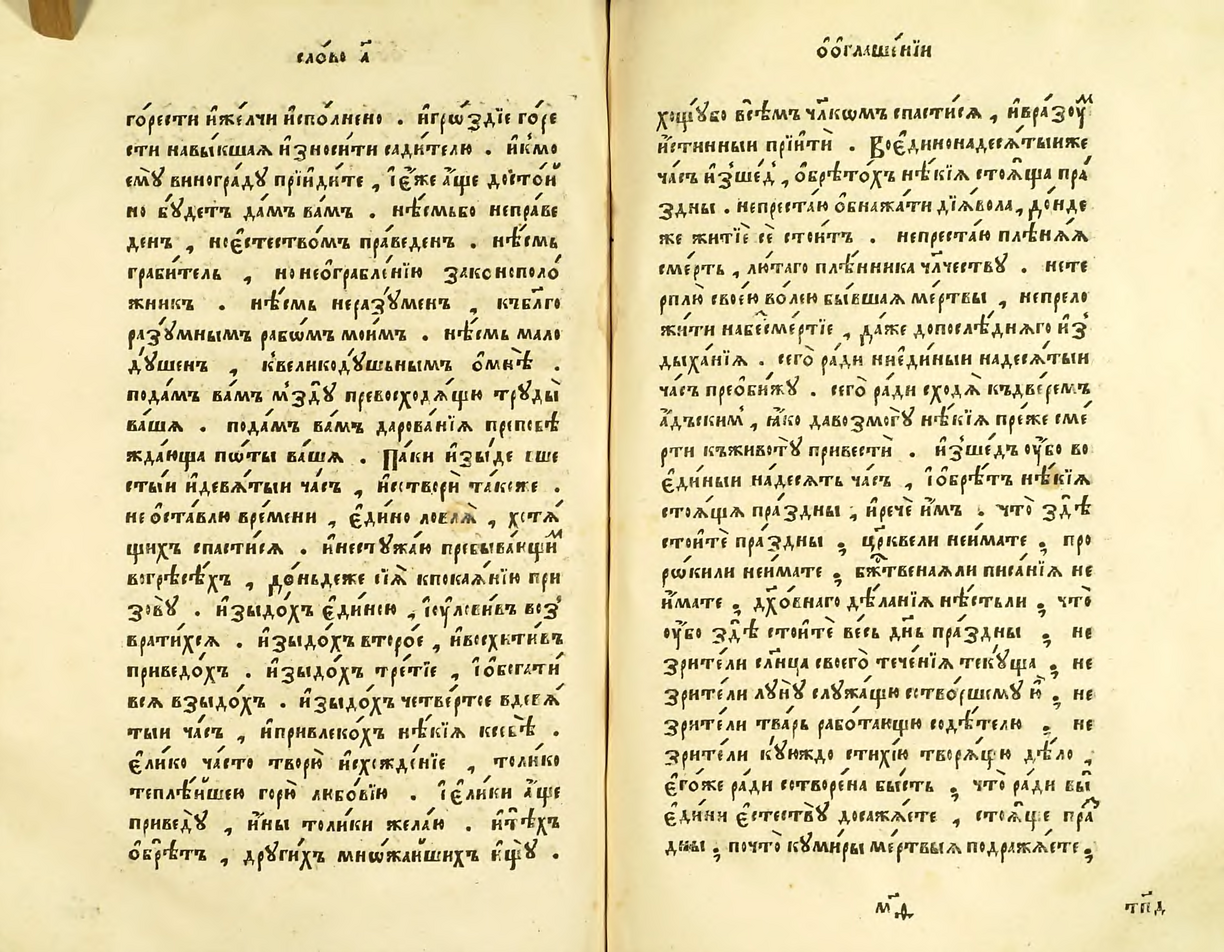 сло́во а҃
го́рести и҆же́лчи и҆спо́лнено . и҆гро́здїе го́ре
сти навы́кшаѧ и҆зноси́ти сади́телю . и҆кмо
емꙋ̀ виногра́дꙋ прїиди́те , і҆є҆́же а҆́ще досто́й
но бꙋ́детъ да́мъ ва́мъ . нѣ́смьбо непра́ве
денъ , ноє҆стество́мъ пра́веденъ . нѣ́смь
граби́тель , нонеѡ҆грабле́нїю законополо́
жникъ . нѣ́смь неразꙋ́менъ , къбл҃го
разꙋ́мнымъ рабѡ́мъ мои́мъ . нѣ́смь мало
дꙋ́шенъ , к̾великодꙋ́шьнымъ ѡ҆мнѣ̀ .
пода́мъ ва́мъ м̾здꙋ̀ превосходѧ́щꙋю трꙋды̀
ва́шѧ . пода́мъ ва́мъ дарова́нїѧ препобѣ
жда́юща по́ты ва́шѧ . Па́ки и҆зы́де в̾ше
сты́и и҆девѧ́тыи ча́съ , и҆сотворѝ та́коже .
не ѡ҆ста́влю вре́мени , є҆ди́но ловлѧ̀ , хотѧ́
щихъ спасти́сѧ . и҆нестꙋжа́ю пребыва́ющим
вогрѣсѣ́хъ , до́ньдеже сїѧ̀ кпокаѧ́нїю при
зовꙋ̀ . и҆зыдо́хъ є҆ди́ною , і҆ꙋлови́въ воз̾
врати́хсѧ . и҆зыдо́хъ второ́е , и҆восхити́въ
приведо́хъ . и҆зыдо́хъ тре́тїе , і҆ѡ҆богати́
всѧ взыдо́хъ . и҆зыдо́хъ четве́ртое вдевѧ́
тыи ча́съ , и҆привлеко́хъ нѣ́кїѧ ксебѣ̀ .
є҆ли́ко ча́сто творю̀ и҆схожде́нїе , толи́ко
теплѣ́йшею горю̀ любо́вїю . і҆є҆ли́ки а҆́ще
приведꙋ̀ , и҆́ны толи́ки жела́ю . и҆тѣ́хъ
ѡ҆брѣ́тъ , дрꙋги́хъ мно́жайшихъ и҆щꙋ̀ .
ѡ҆ѻ҆глаше́нїи
хощꙋ́бо всѣ́мъ чл҃кѡмъ спасти́сѧ , и҆вра́зоум
и҆́стинныи прїитѝ . Воє҆динонадесѧ́тыиже
ча́съ и҆з̾ше́д̾ , ѡ҆брѣто́хъ нѣ́кїѧ стоѧ́ща пра́
здны . непреста́ю ѡ҆бнажа́ти дїѧ́вола , до́нде
же житїѐ сѐ стои́тъ . непреста́ю плѣнѧ́ѧ
сме́рть , лю́таго плѣ́нника чл҃чествꙋ . нете
рплю̀ свое́ю во́лею бы́вшаѧ ме́ртвы , непрело
жи́ти набесме́ртїе , да́же допослѣ́днѧго и҆з̾
дыха́нїѧ . сего̀ ра́ди ниє҆ди́ныи надесѧ́тыи
ча́съ преѡ҆би́жꙋ . сего̀ ра́ди сходѧ̀ къдве́ремъ
а҆́дъским̾ , ꙗ҆́ко давозмогꙋ̀ нѣ́кїѧ пре́же сме́
рти къживотꙋ̀ привестѝ . и҆з̾ше́дъ оу҆́бо во
є҆ди́ныи на́десѧть ча́съ , і҆ѡ҆брѣ́тъ нѣ́кїѧ
стоѧ́щѧ пра́здны , и҆речѐ и҆́мъ . что̀ здѣ̀
стоитѐ пра́здны ; цр҃квели неи́мате ; про
ро́кили неи́мате ; бж҃твенаѧли писа́нїѧ не
и҆́мате ; дх҃о́внаго дѣ́ланїѧ нѣ́стьли ; что̀
оу҆́бо здѣ̀ стоитѐ ве́сь дн҃ь пра́здны ; не
зри́тели сл҃нца своегѡ̀ тече́нїѧ текꙋ́ща ; не
зри́тели лꙋнꙋ̀ слꙋ́жащꙋю сотво́ршемꙋ ю҆̀ ; не
зри́тели тва́рь рабо́тающꙋю содѣ́телю ; не
зри́тели кꙋ́юждо стихі́ю творѧ́щꙋю дѣ́ло ,
є҆го́же ра́ди сотворена̀ бы́сть ; что̀ ра́ди вы̀
є҆ди́ни є҆стествꙋ̀ досажа́ете , стоѧ́ще пра́з
дны ; почто̀ кꙋми́ры ме́ртвыѧ подража́ете ;
м҃д
тп҃д